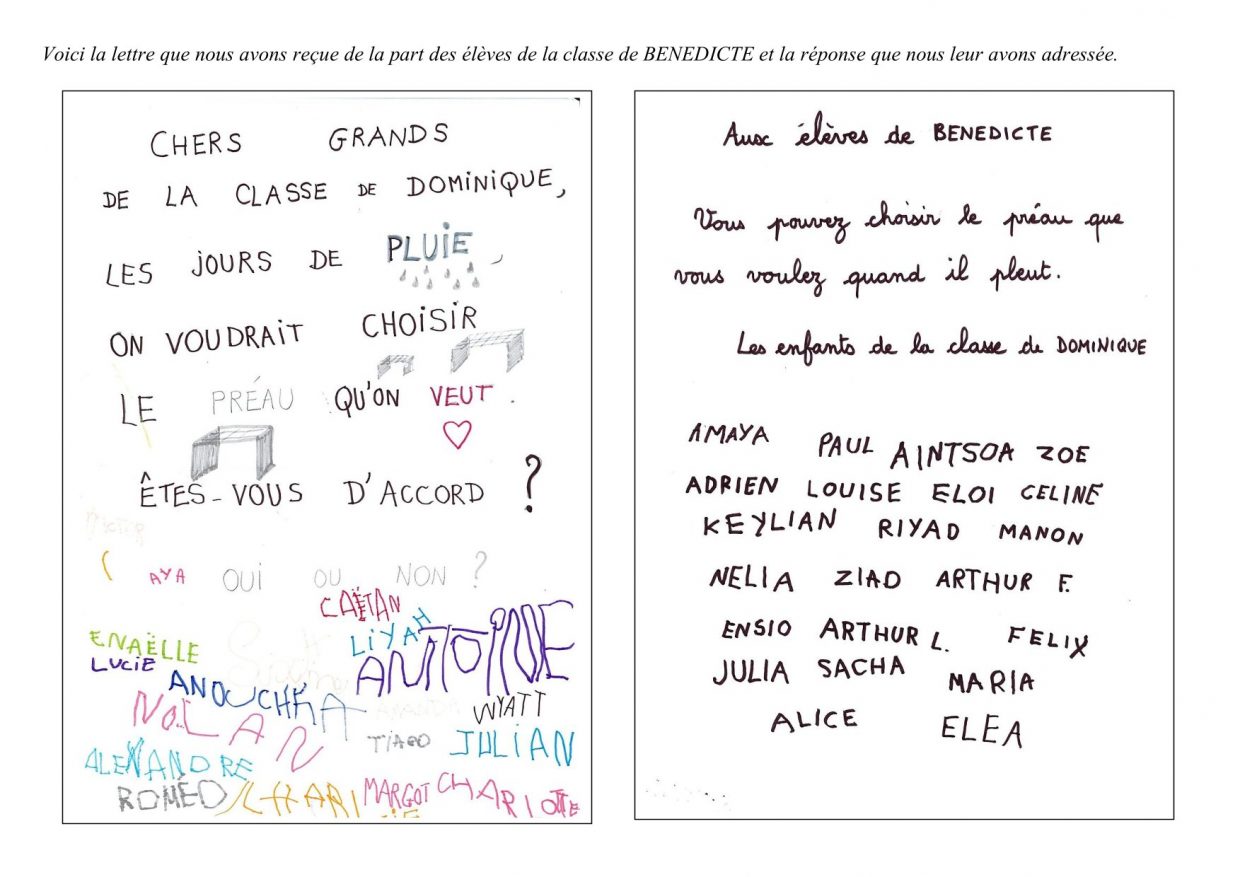 Voici la lettre que nous avons reçue de la part des élèves de la classe de BENEDICTE et la réponse que nous leur avons adressée.
CHERS GRANDS
DE LA CLASSE DE DOMINIQUE,
LES JOURS DE PLUIE,
ON VOUDRAIT CHOISIR
LE PRÉAU QU'ON VEUT.
ÊTES-VOUS D'ACCORD ?
VICTOR
AYA OUI OU NON ?
CAËTAN
ENAËLLE LIYAH
LUCIE ANTOINE
ANOUCHKA
NOLAN AMANDA WYATT
TIAGO JULIAN
ALEXANDRE
ROMÉO MARGOT CHARLOTTE
Aux élèves de BENEDICTE
Vous pouvez choisir le préau que
vous voulez quand il pleut.
Les enfants de la classe de DOMINIQUE
AMAYA PAUL AINTSOA ZOE
ADRIEN LOUISE ELOI CELINE
KEYLIAN RIYAD MANON
NELIA ZIAD ARTHUR F.
ENSIO ARTHUR L. FELIX
JULIA SACHA MARIA
ALICE ELEA